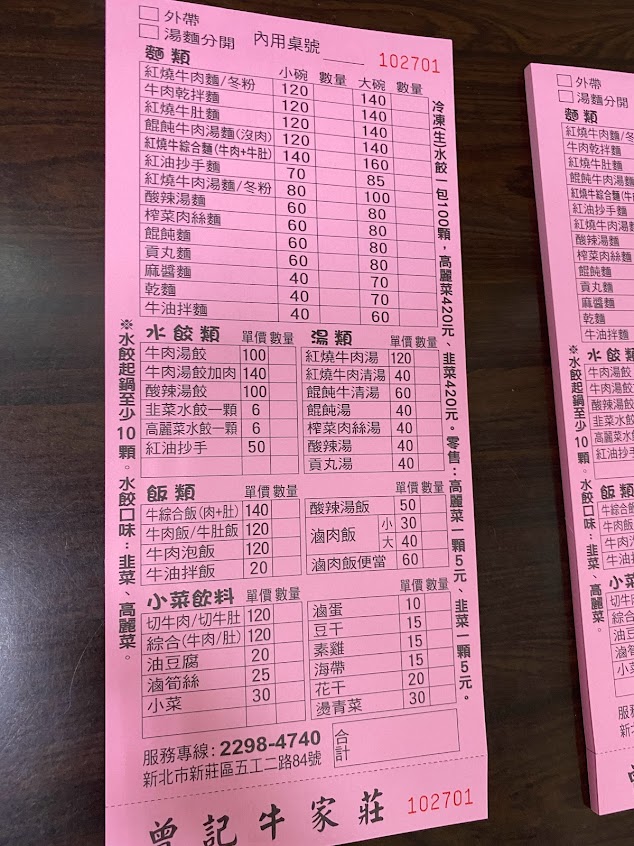 □外帶
□湯麵分開 內用桌號 ____ 102701
麵類 小碗 數量 大碗 數量
紅燒牛肉麵/冬粉 120 140
牛肉乾拌麵 120 140
紅燒牛肚麵 120 140
餛飩牛肉湯麵(沒肉) 120 140
紅燒牛綜合麵(牛肉+牛肚) 140 160
紅油抄手麵 70 85
紅燒牛肉湯麵/冬粉 80 100
酸辣湯麵 60 80
榨菜肉絲麵 60 80
餛飩麵 60 80
貢丸麵 60 80
麻醬麵 40 70
乾麵 40 70
牛油拌麵 40 60
水餃類 單價 數量
牛肉湯餃 100
牛肉湯餃加肉 140
酸辣湯餃 100
韭菜水餃一顆 6
高麗菜水餃一顆 6
紅油抄手 50
湯類 單價 數量
紅燒牛肉湯 120
紅燒牛肉清湯 40
餛飩牛清湯 60
餛飩湯 40
榨菜肉絲湯 40
酸辣湯 40
貢丸湯 40
飯類 單價 數量
牛綜合飯(肉+肚) 140
牛肉飯/牛肚飯 120
牛肉泡飯 120
牛油拌飯 20
單價 數量
酸辣湯飯 50
滷肉飯 小 30
大 40
滷肉飯便當 60
小菜飲料 單價 數量
切牛肉/切牛肚 120
綜合(牛肉/肚) 120
油豆腐 20
滷筍絲 25
小菜 30
單價 數量
滷蛋 10
豆干 15
素雞 15
海帶 15
花干 20
燙青菜 30
服務專線:2298-4740
新北市新莊區五工二路84號
合計
曾記牛家莊 102701
※水餃起鍋至少10顆。水餃口味:韭菜、高麗菜。
冷凍(生)水餃一包100顆,高麗菜420元、韭菜420元。零售:高麗菜一顆5元、韭菜一顆5元。
□外帶
□湯麵分開
麵類
紅燒牛肉麵/
牛肉乾拌麵
紅燒牛肚麵
餛飩牛肉湯麵
紅燒牛綜合麵(牛
紅油抄手麵
紅燒牛肉湯麵
酸辣湯麵
榨菜肉絲麵
餛飩麵
貢丸麵
麻醬麵
乾麵
牛油拌麵
水餃類
牛肉湯餃
牛肉湯餃
酸辣湯餃
韭菜水餃一
高麗菜水餃
紅油抄手
飯類
牛綜合飯
牛肉飯
牛肉泡
牛油拌
小菜
切牛肉
綜合
油豆
滷筍
小菜
服務
新北
※水餃起鍋至少10顆。水餃口味:韭菜、高麗菜。